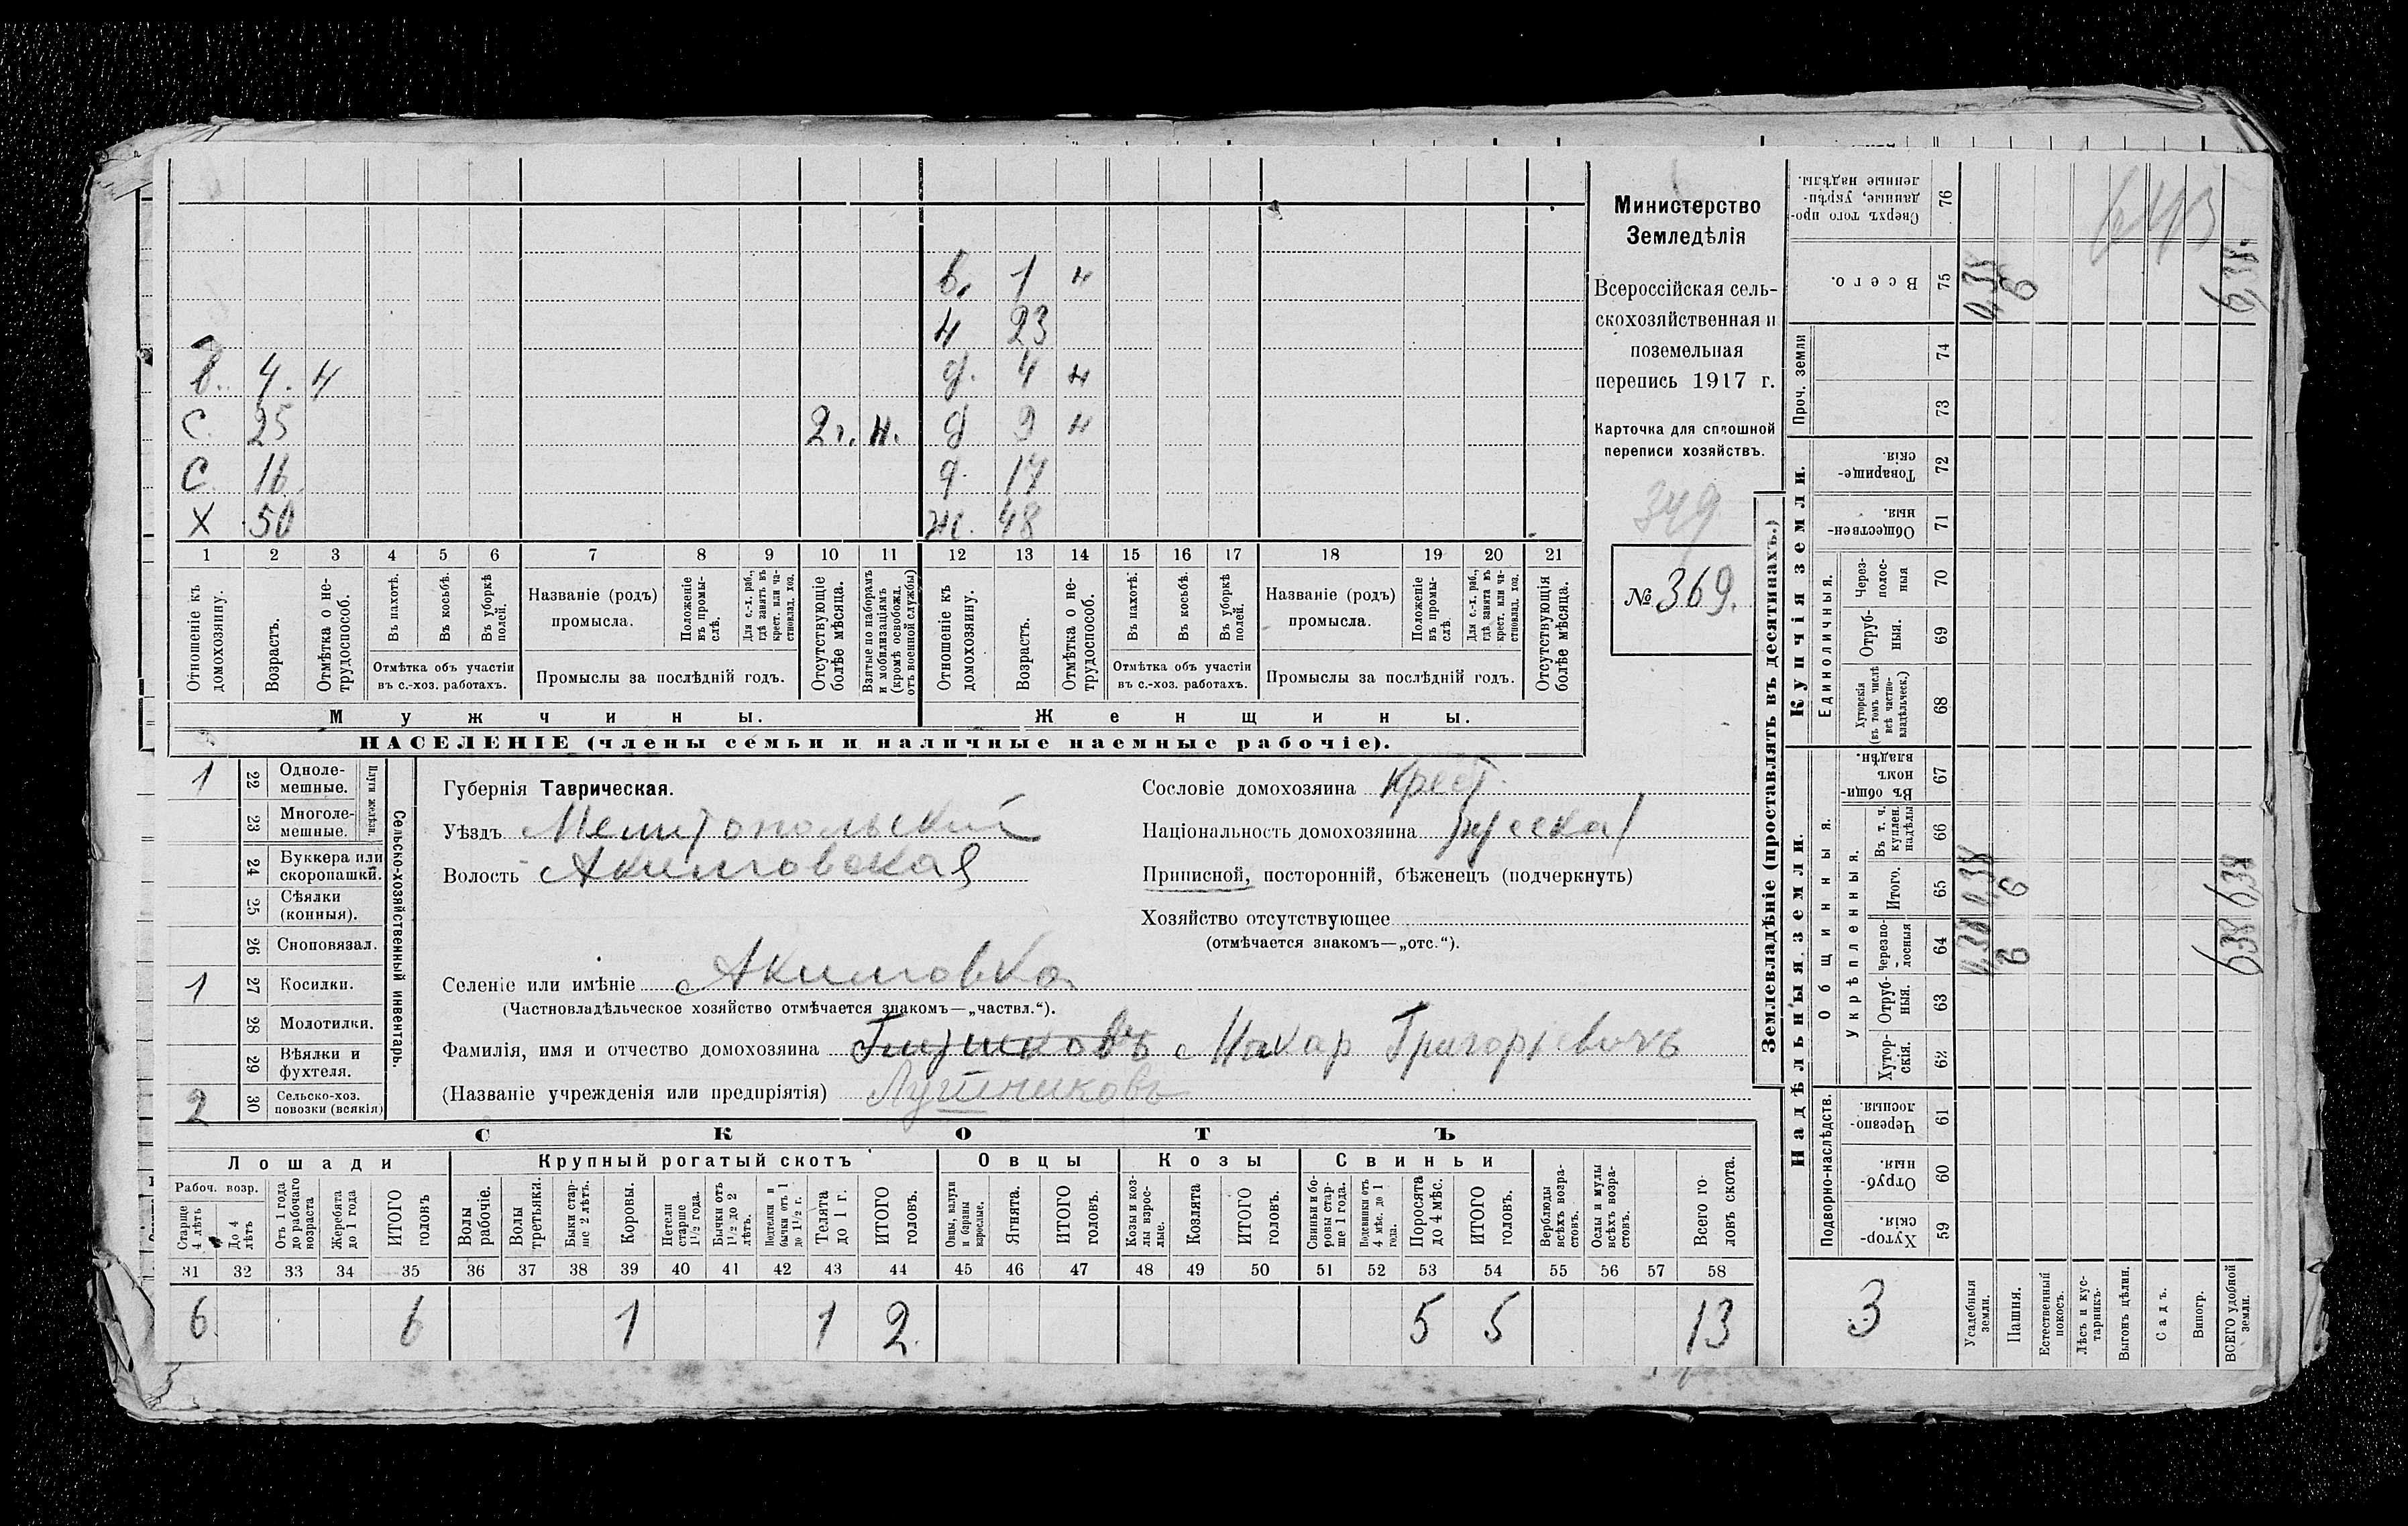 в. 1 н
н 23
в. 4. н д. 4 н
с. 25 2 г. н. д 9 н
с 16. д. 17
х 50 ж. 48
1 2 3 4 5 6 7 8 9 10 11 12 13 14 15 16 17 18 19 20 21
Отношеніе къ домохозяину.
Возрастъ.
Отмѣтка о не-трудоспособ.
Въ пахотѣ.
Въ косьбѣ.
Въ уборкѣ полей.
Отмѣтка объ участіи въ с.-хоз. работахъ.
Названіе (родъ) промысла.
Положеніе въ промы-слѣ.
Для с.-х. раб., гдѣ занятъ въ крест. или ча-стновлад. хоз.
Промыслы за послѣдній годъ.
Отсутствующіе болѣе мѣсяца.
Взятые по наборамъ и мобилизаціямъ (кромѣ освобожд. отъ военной службы)
Отношеніе къ домохозяину.
Возрастъ.
Отмѣтка о не-трудоспособ.
Въ пахотѣ.
Въ косьбѣ.
Въ уборкѣ полей.
Отмѣтка объ участіи въ с.-хоз. работахъ.
Названіе (родъ) промысла.
Положеніе въ промы-слѣ.
Для с.-х. раб., гдѣ занята въ крест. или ча-стновлад. хоз.
Промыслы за послѣдній годъ.
Отсутствующія болѣе мѣсяца.
Мужчины. Женщины.
НАСЕЛЕНІЕ (члены семьи и наличные наемные рабочіе).
Министерство
Земледѣлія
Всероссійская сель-
скохозяйственная и
поземельная
перепись 1917 г.
Карточка для сплошной
переписи хозяйствъ.
349
№ 369.
1 22 Одноле-мешные.
23 Многоле-мешные.
Плуги желѣзн.
24 Буккера или скоропашки.
25 Сѣялки (конныя).
26 Сноповязал.
1 27 Косилки.
28 Молотилки.
29 Вѣялки и фухтеля.
2 30 Сельско-хоз. повозки (всякія)
Сельско-хозяйственный инвентарь.
Губернія Таврическая.
Уѣздъ Мелитопольский
Волость Акимовская
Селеніе или имѣніе Акимовка
(Частновладѣльческое хозяйство отмѣчается знакомъ—„частвл.“).
Фамилія, имя и отчество домохозяина Глушковъ Макар Григорьевичъ
(Названіе учрежденія или предпріятія) Лушниковъ
Сословіе домохозяина крест.
Національность домохозяина русская
Приписной, посторонній, бѣженецъ (подчеркнуть)
Хозяйство отсутствующее
(отмѣчается знакомъ—„отс.“).
СКОТЪ
Лошади Крупный рогатый скотъ Овцы Козы Свиньи
Рабоч. возр.
Старше 4 лѣтъ
До 4 лѣтъ
Отъ 1 года до рабочаго возраста
Жеребята до 1 года
ИТОГО головъ
Волы рабочіе.
Волы третьяки.
Быки стар-ше 2 лѣтъ.
Коровы.
Нетели старше 1½ года.
Бычки отъ 1½ до 2 лѣтъ.
Подтелки и бычки отъ 1 до 1½ г.
Телята до 1 г.
ИТОГО головъ.
Овцы, валухи и бараны взрослые.
Ягнята.
ИТОГО головъ.
Козы и коз-лы взрос-лые.
Козлята
ИТОГО головъ.
Свиньи и бо-ровы стар-ше 1 года.
Подсвинки отъ 4 мѣс. до 1 года.
Поросята до 4 мѣс.
ИТОГО головъ.
Верблюды всѣхъ возра-стовъ.
Ослы и мулы всѣхъ возра-стовъ.
Всего го-ловъ скота.
31 32 33 34 35 36 37 38 39 40 41 42 43 44 45 46 47 48 49 50 51 52 53 54 55 56 57 58
6. 6 1 1 2. 5 5 13
Землевладѣніе (проставлять въ десятинахъ.)
Надѣльныя земли. Купчія земли. Проч. земли
Подворно-наслѣдств. Общинныя. Укрѣпленныя. Единоличныя.
Хутор-скія. 59
Отруб-ныя. 60
Черезпо-лосныя 61
Хутор-скія. 62
Отруб-ныя. 63
Черезпо-лосныя 64
Итого. 65
Въ т. ч. куплен. надѣлы 66
Въ общи-номъ владѣн. 67
Хуторскія (въ томъ числѣ всѣ частно-владѣльческ.) 68
Отруб-ныя. 69
Через-полос-ныя 70
Обществен-ныя. 71
Товарище-скія. 72
73
74
Всего. 75
Сверхъ того про-данные, укрѣп-ленные надѣлы. 76
3
Усадебныя земли. 0,38 0,38 0,38
Пашня. 6 6 6
Естественный покосъ.
Лѣсъ и кус-тарникъ.
Выгонъ цѣлин.
Садъ.
Виногр.
ВСЕГО удобной земли. 6,38 6,38 6,38
643